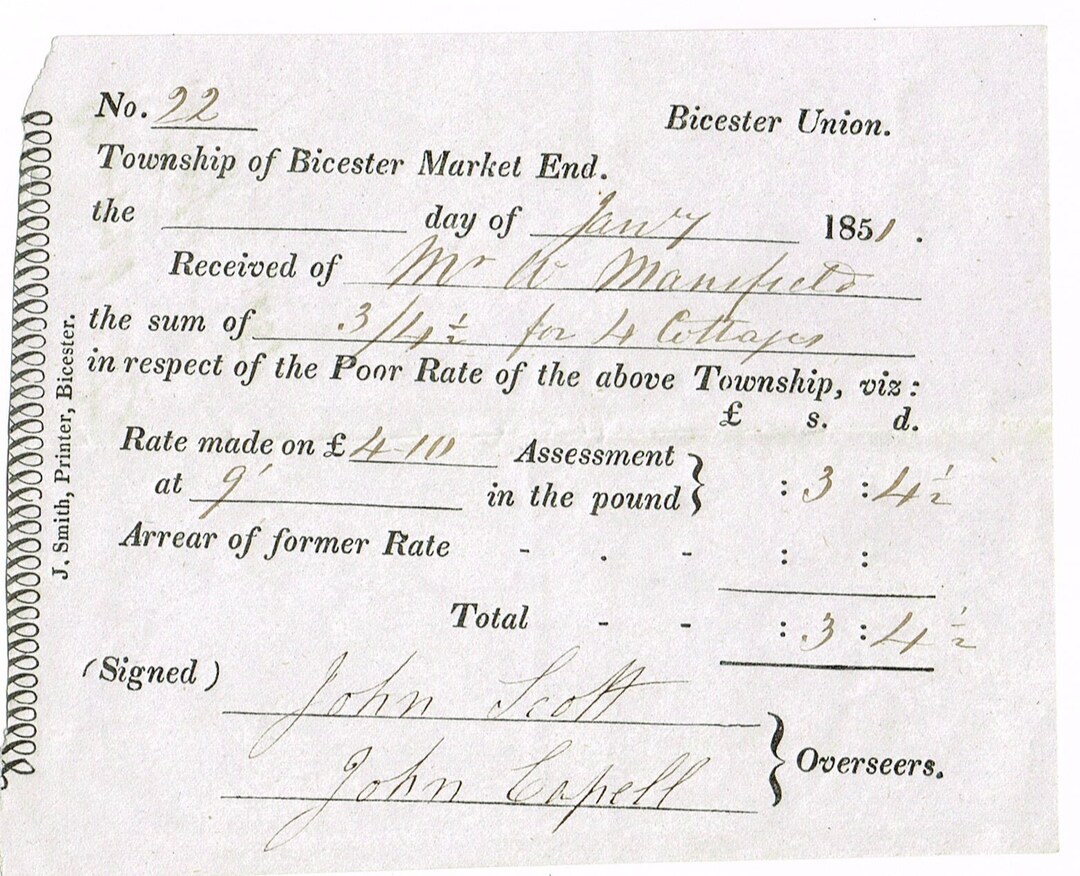 No. 22
Bicester Union.
Township of Bicester Market End.
the day of Jany 1851.
Received of Mr W Mansfield
the sum of 3/4½ for 4 Cottages
in respect of the Poor Rate of the above Township, viz:
£ s. d.
Rate made on £ 4-10 Assessment
at 9' in the pound } : 3 : 4½
Arrear of former Rate - . - : :
Total - - : 3 : 4½
(Signed)
John Scott
John Capell
} Overseers.
J. Smith, Printer, Bicester.